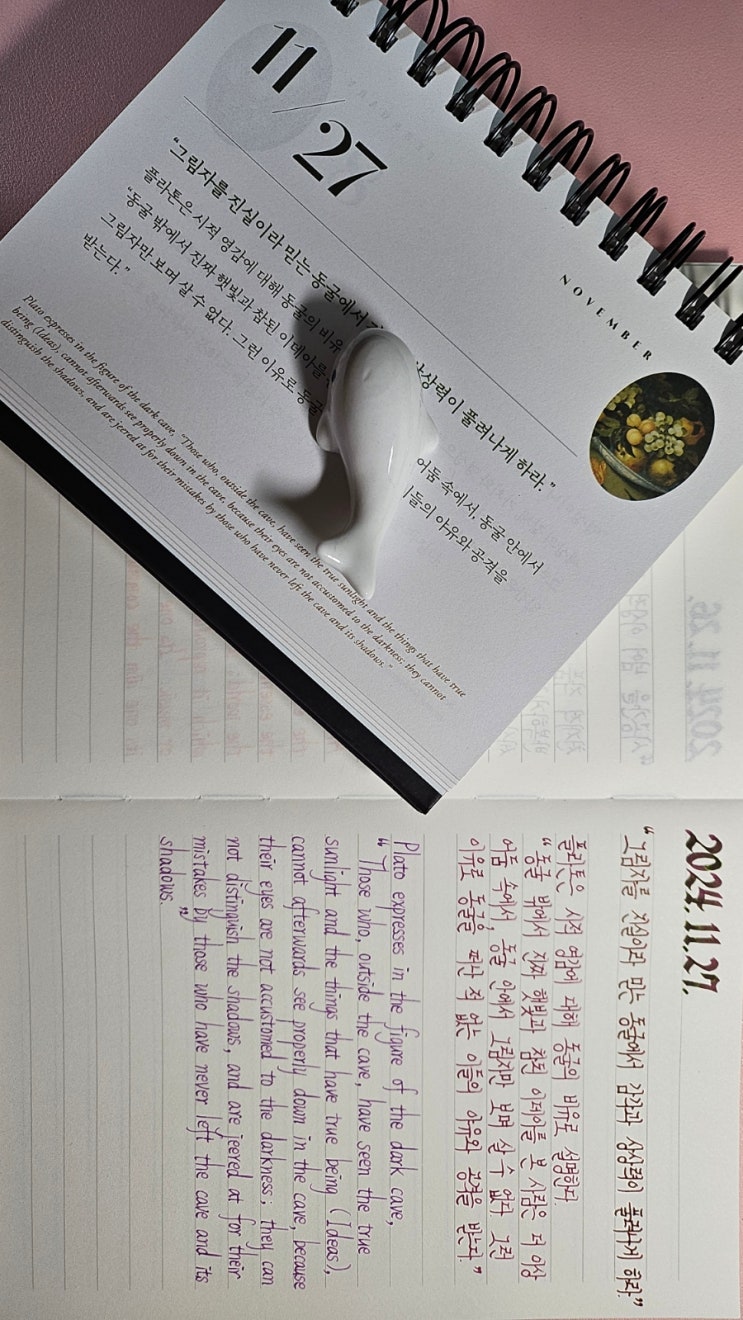 11/27
NOVEMBER
"그림자를 진실이라 믿는 동굴에서 상상력이 풀려나게 하라."
플라톤은 시적 영감에 대해 동굴의 비유
"동굴 밖에서 진짜 햇빛과 참된 이데아를 어둠 속에서, 동굴 안에서
그림자만 보며 살 수 없다. 그런 이유로 동굴 이들의 야유와 공격을
받는다."
Plato expresses in the figure of the dark cave, "Those who, outside the cave, have seen the true sunlight and the things that have true
being (Ideas), cannot afterwards see properly down in the cave, because their eyes are not accustomed to the darkness; they cannot
distinguish the shadows, and are jeered at for their mistakes by those who have never left the cave and its shadows."
2024. 11. 27.
"그림자를 진실이라 믿는 동굴에서 감각과 상상력이 풀려나게 하라."
플라톤은 시적 영감에 대해 동굴의 비유로 설명한다.
"동굴 밖에서 진짜 햇빛과 참된 이데아를 본 사람은 더 이상
어둠 속에서, 동굴 안에서 그림자만 보며 살 수 없다. 그런
이유로 동굴을 떠난 적 없는 이들의 야유와 공격을 받는다."
Plato expresses in the figure of the dark cave,
"Those who, outside the cave, have seen the true
sunlight and the things that have true being (Ideas),
cannot afterwards see properly down in the cave, because
their eyes are not accustomed to the darkness; they can
not distinguish the shadows, and are jeered at for their
mistakes by those who have never left the cave and its
shadows."